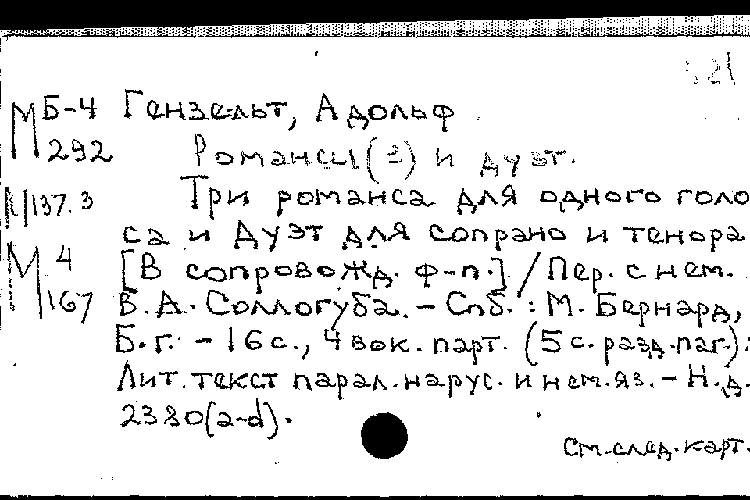 521
М Б-4 Гензельт, Адольф
292 Романсы (3) и дуэт.
М 137.3 Три романса для одного голо
са и Дуэт для сопрано и тенора
М 4 [В сопровожд. ф-п.] / Пер. с нем.
167 В.А. Соллогуба. - Спб. : М. Бернард,
Б.г. - 16 с., 4 вок. парт. (5 с. разд. паг.);
Лит. текст парал. на рус. и нем. яз. - Н.д.
2380(a-d).
см. след. карт.